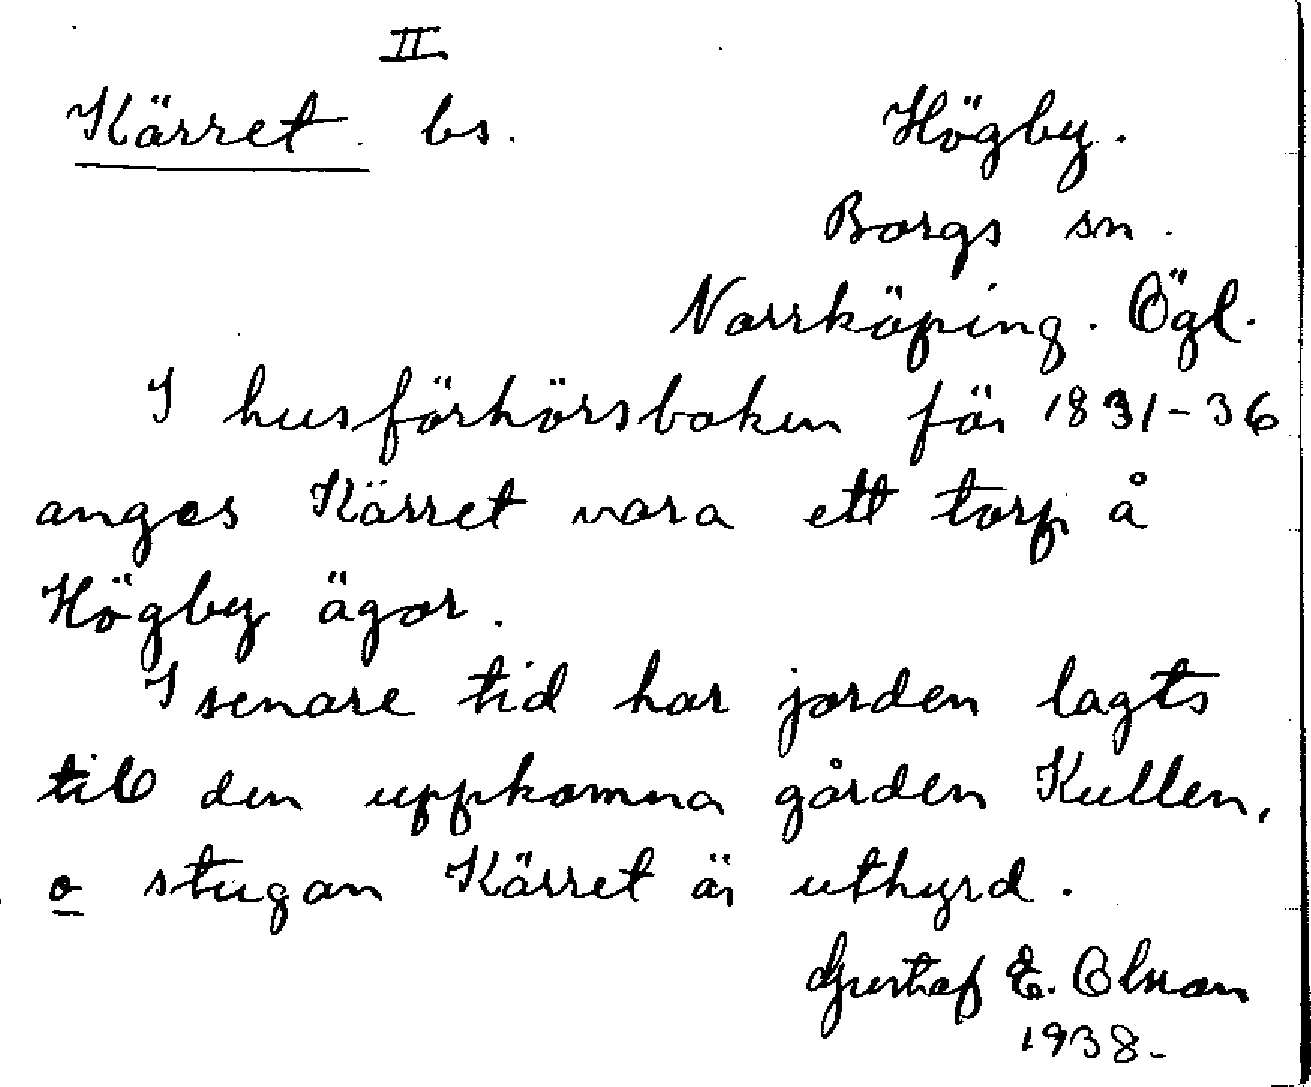 II
Kärret. bs.
Högby.
Borgs sn.
Norrköping. Ögl.
I husförhörsboken för 1831-36
anges Kärret vara ett torp å
Högby ägor.
I senare tid har jorden lagts
till den uppkomna gården Kullen,
o stugan Kärret är uthyrd.
Gustaf E. Olsson
1938.